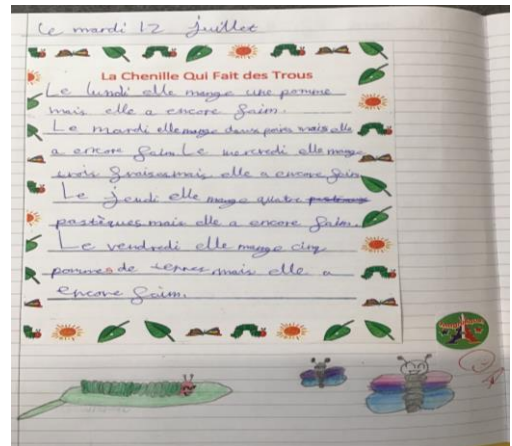 Le mardi 12 juillet
La Chenille Qui Fait des Trous
Le lundi elle mange une pomme
mais elle a encore faim.
Le mardi elle mange deux poirs mais elle
a encore faim Le mercredi elle mange
trois fraises mais elle a encore faim
Le jeudi elle mange quatre
pastèques mais elle a encore faim.
Le vendredi elle mange cinq
pommes de terres mais elle a
encore faim.